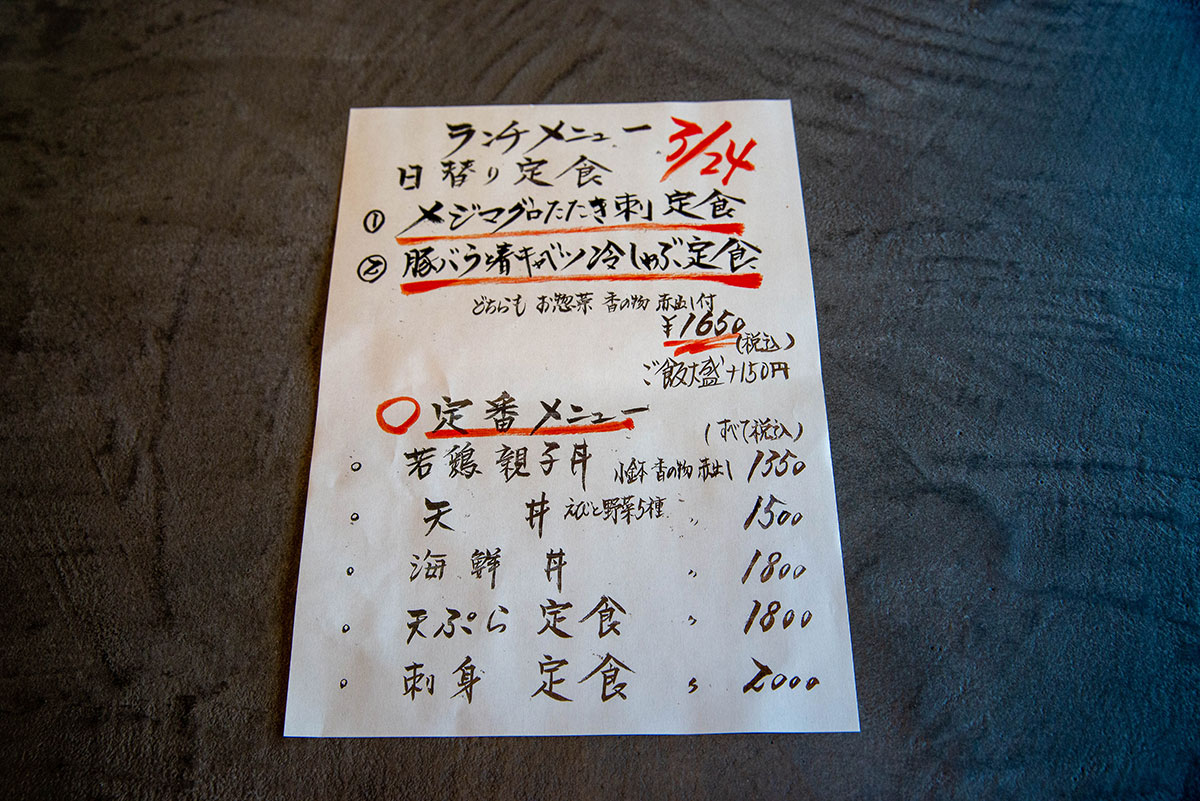 ランチメニュー 3/24
日替り定食
① メジマグロたたき刺定食
② 豚バラと春キャベツ冷しゃぶ定食
どちらも お惣菜 香の物 赤出し付
¥1650
(税込)
ご飯大盛+150円
○ 定番メニュー
(すべて税込)
。 若鶏親子丼 小鉢 香の物 赤出し 1350
。 天丼 えびと野菜5種 〃 1500
。 海鮮丼 〃 1800
。 天ぷら定食 〃 1800
。 刺身定食 〃 2000